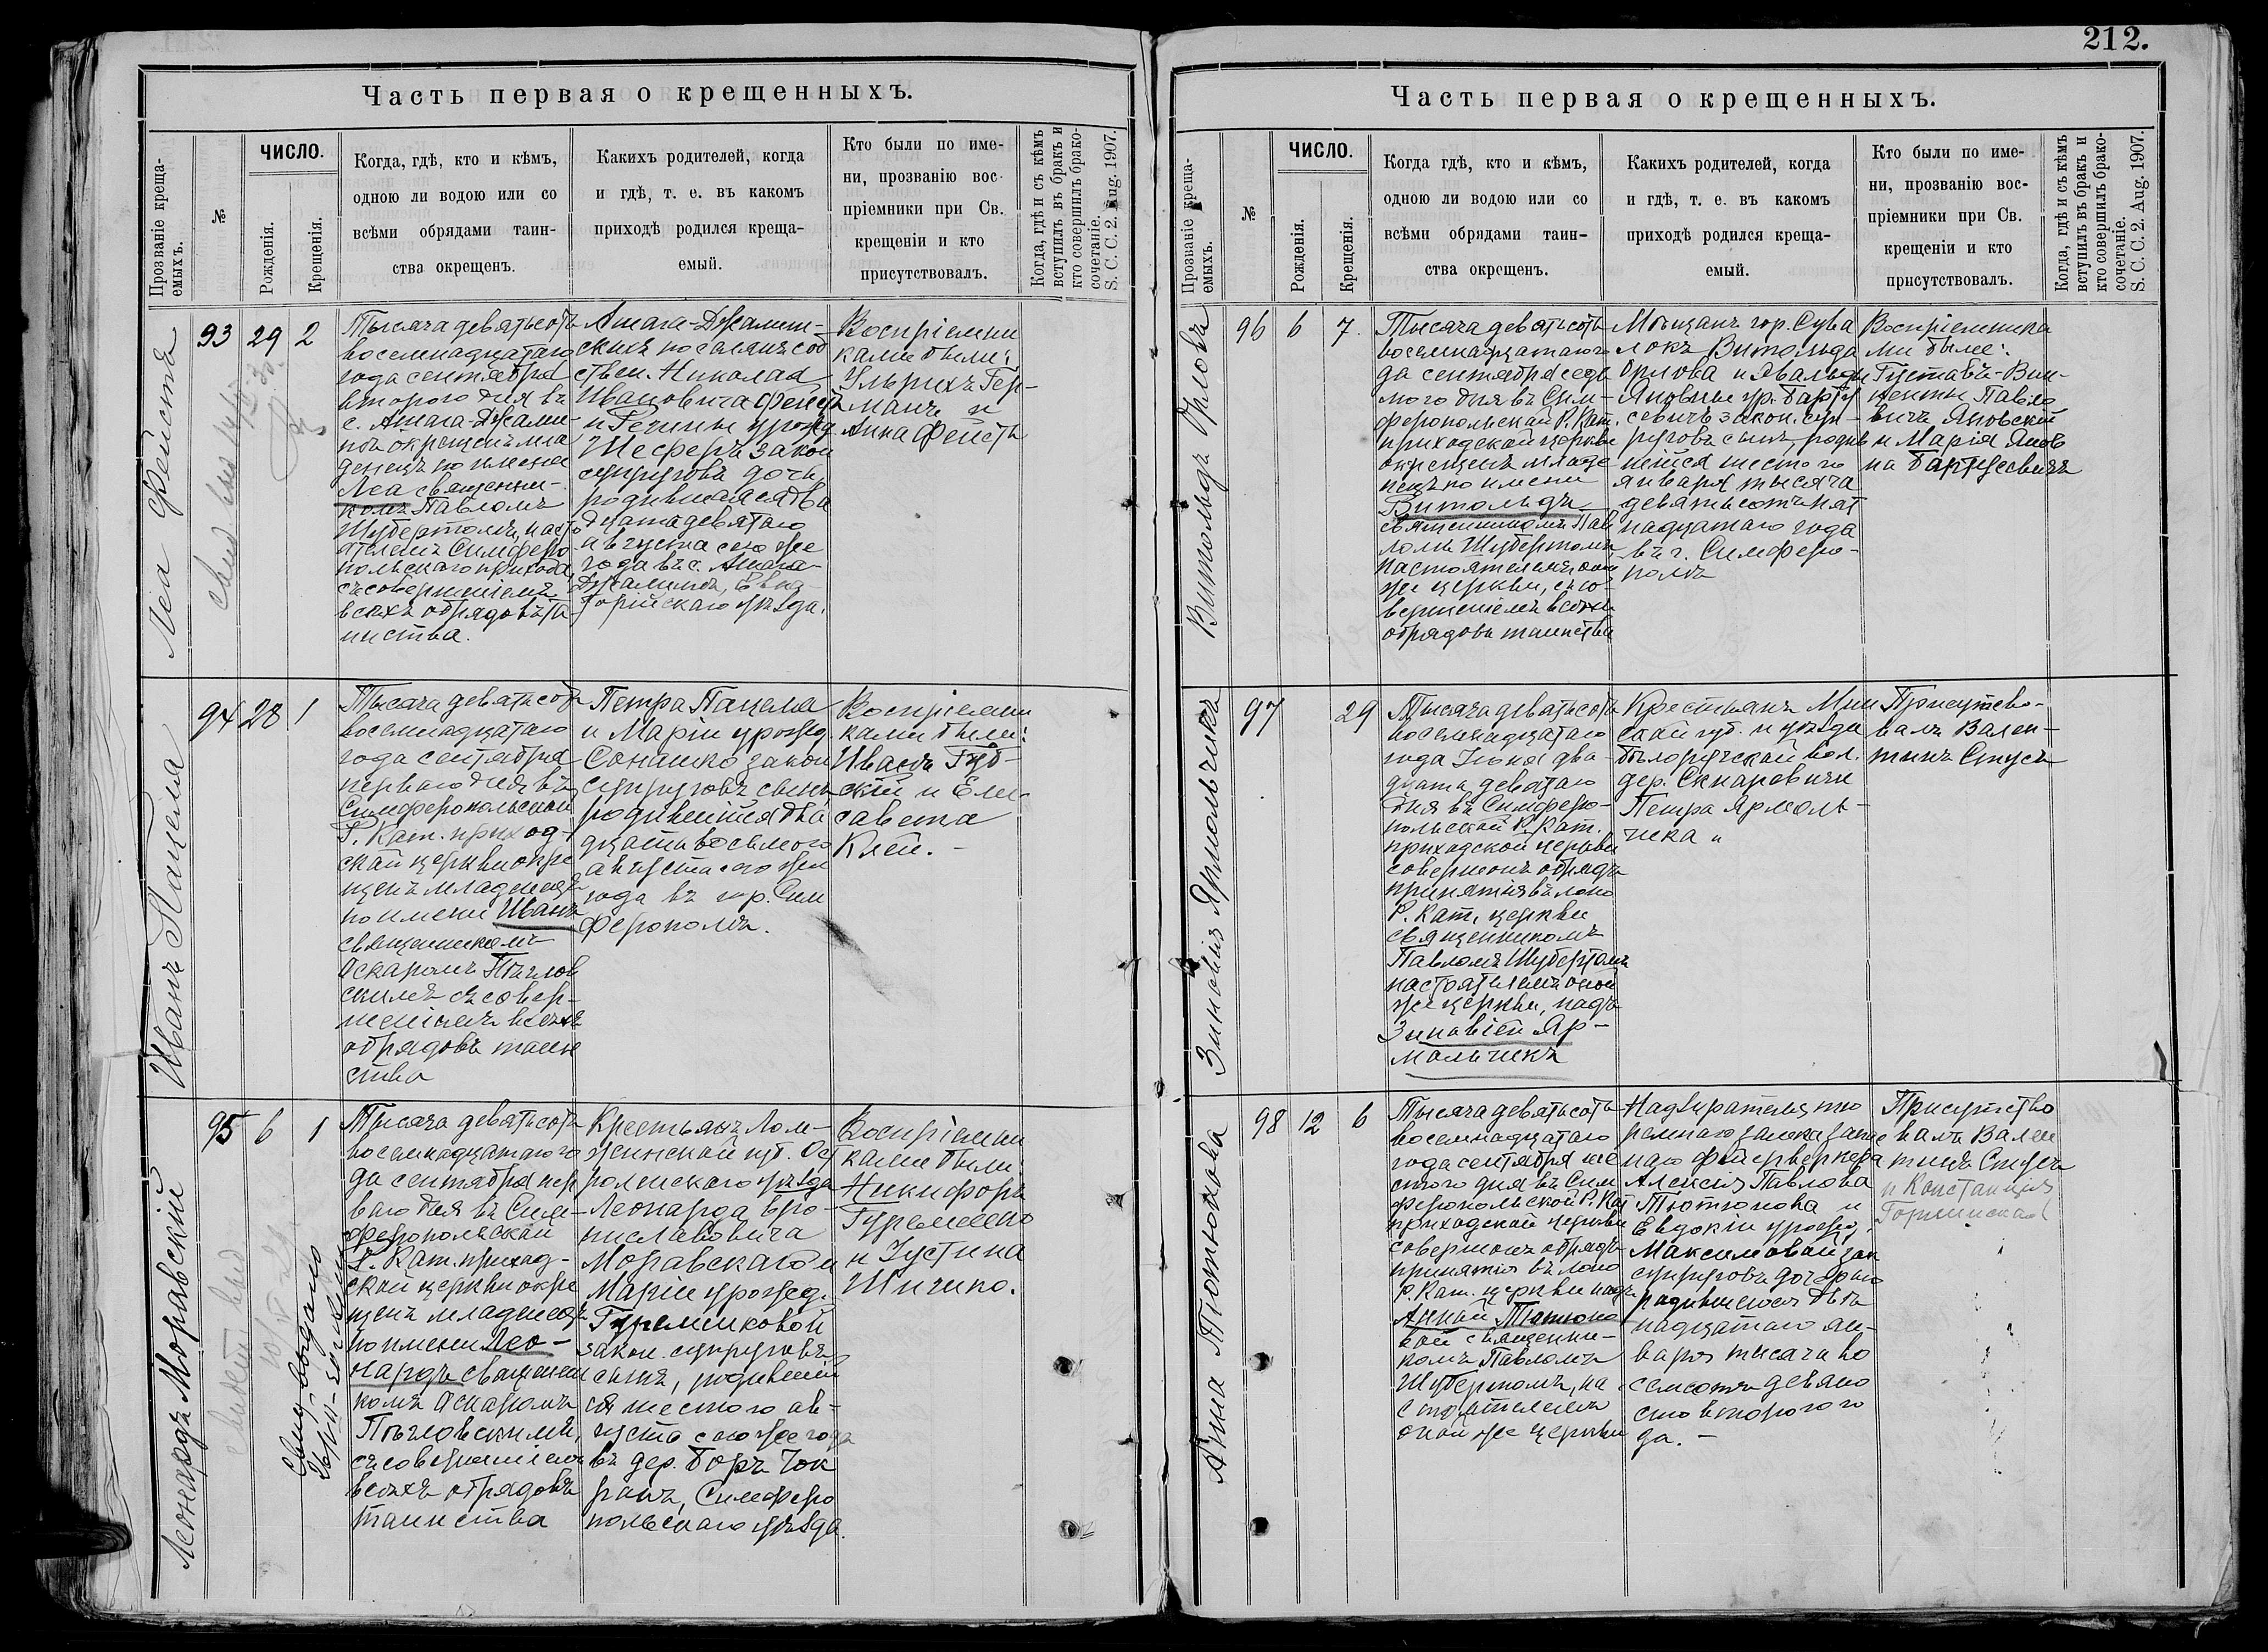 Часть первая о крещенныхъ.
Прозваніе креща-
емыхъ.
№
ЧИСЛО.
Рожденія.
Крещенія.
Когда, гдѣ, кто и кѣмъ,
одною ли водою или со
всѣми обрядами таин-
ства окрещенъ.
Какихъ родителей, когда
и гдѣ, т. е. въ какомъ
приходѣ родился креща-
емый.
Кто были по име-
ни, прозванію вос-
пріемники при Св.
крещеніи и кто
присутствовалъ.
Когда, гдѣ и съ кѣмъ
вступилъ въ бракъ и
кто совершилъ брако-
сочетаніе.
S. C. C. 2. Aug. 1907.
Леа Фейстъ
93
29
2
Тысяча девятьсотъ
восемнадцатаго
года сентября
второго дня въ
с. Атага-Джами-
нѣ окрещенъ мла
денецъ по имени
Леа священни-
комъ Павломъ
Шубертомъ, насто
ятелемъ Симферо
польскаго прихода,
съ совершеніемъ
всѣхъ обрядовъ та
инства.
скихъ поселянъ соб
ствен. Николая
Ивановича Фейстъ
и Регины урожд.
Шеферъ закон
супруговъ дочь
родившаяся два
дцать девятаго
августа сего же
года въ с. Атага-
Джаминъ, Евпа-
торійскаго уѣзда.
Воспріемни
ками были:
Ульрихъ Гер-
манъ и
Анна Фейстъ
Иванъ Пацела
94
28
1
Тысяча девятьсотъ
восемнадцатаго
года сентября
перваго дня въ
Симферопольской
Р. Кат. приход-
ской церкви окре
щенъ младенецъ
по имени Иванъ
священникомъ
Оскаромъ Пѣгловскимъ
съ совер-
шеніемъ всѣхъ
обрядовъ таин
ства
Петра Пацела
и Маріи урожд
закон
супруговъ сынъ
родившійся два
дцать восьмого
августа сего же
года въ гор. Сим
ферополѣ.
Воспріемни
ками были:
Иванъ Губ-
скій и Ели-
савета
Клей.
Леонардъ Моравскій
95
6
1
Свид. выдано
Тысяча девятьсотъ
восемнадцатаго го
да сентября пер
ваго дня въ Сим-
феропольской
Р. Кат. приход-
ской церкви окре
щенъ младенецъ
по имени Лео-
нардъ священни
комъ Оскаромъ
Пѣгловскимъ,
съ совершеніемъ
всѣхъ обрядовъ
таинства
Крестьянъ Лом-
жинской губ. Ост
роленскаго уѣзда
Леонарда Бро-
ниславовича
Моравскаго и
Маріи урожд.
Гуременковой
закон. супруговъ
сынъ, родившій
ся шестого ав-
густа сего же года
въ дер. Боръ Чок
ракъ, Симферо
польскаго уѣзда.
Воспріемни
ками были:
Никифоръ
Гуременко
и Густина
Шичко.
212.
Часть первая о крещенныхъ.
Прозваніе креща-
емыхъ.
№
ЧИСЛО.
Рожденія.
Крещенія.
Когда гдѣ, кто и кѣмъ,
одною ли водою или со
всѣми обрядами таин-
ства окрещенъ.
Какихъ родителей, когда
и гдѣ, т. е. въ какомъ
приходѣ родился креща-
емый.
Кто были по име-
ни, прозванію вос-
пріемники при Св.
крещеніи и кто
присутствовалъ.
Когда, гдѣ и съ кѣмъ
вступилъ въ бракъ и
кто совершилъ брако-
сочетаніе.
S. C. C. 2. Aug. 1907.
Витольдъ Орловъ
96
6
7.
Тысяча девятьсотъ
восемнадцатаго го
да сентября седь
мого дня въ Сим-
феропольской Р. Кат.
приходской церкви
окрещенъ младе
нецъ по имени
Витольдъ
священникомъ Пав
ломъ Шубертомъ
настоятелемъ оной
же церкви, съ со-
вершеніемъ всѣхъ
обрядовъ таинства
Мѣщанъ гор. Сува
локъ Витольда
Орлова и
Яновны ур. Барту
севичъ закон. суп-
руговъ сынъ, родив
шійся шестого
января тысяча
девятьсотъ пят
надцатаго года
въ г. Симферо-
полѣ
Воспріемника
ми были:
Густавъ-Вин-
центы Павло
вичъ Яновскій
и Марія Янов
на Бартусевичъ
Зиновія Ярмольчикъ
97
29
Тысяча девятьсотъ
восемнадцатаго
года Іюня два
дцать девятаго
дня въ Симферо-
польской Р. Кат.
приходской церкви
совершонъ обрядъ
принятія въ лоно
Р. Кат. церкви
священникомъ
Павломъ Шубертомъ
настоятелемъ оной
же церкви, надъ
Зиновіей Яр-
мольчикъ
Крестьянъ Мин
ской губ. и уѣзда
Бѣлоручской вол.
дер. Скнаровичи
Петра Ярмоль-
чика и
Присутство-
валъ Вален-
тинъ Стусь
Анна Тютюкова
98
12
6
Тысяча девятьсотъ
восемнадцатаго
года сентября ше
стого дня въ Сим
феропольской Р. Кат
приходской церкви
совершонъ обрядъ
принятія въ лоно
Р. Кат. церкви надъ
Анной Тютюко
вой священни-
комъ Павломъ
Шубертомъ, на
стоятелемъ
оной же церкви
Надзирателя тю
ремнаго замка
Алексія Павлова
Тютюкова и
Евдокіи урожд.
Максимовой зак
супруговъ дочерью
родившеюся двѣ
надцатаго ян-
варя тысяча во
семсотъ девяно
сто второго го
да. —
Присутство
валъ Вален
тинъ Стусь
и Констанція